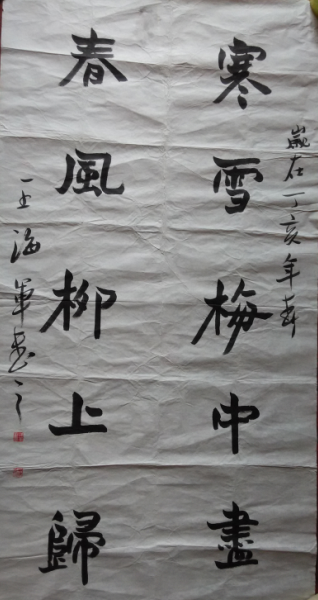 歲在丁亥年春
寒雪梅中盡
春風柳上歸
王海軍書之